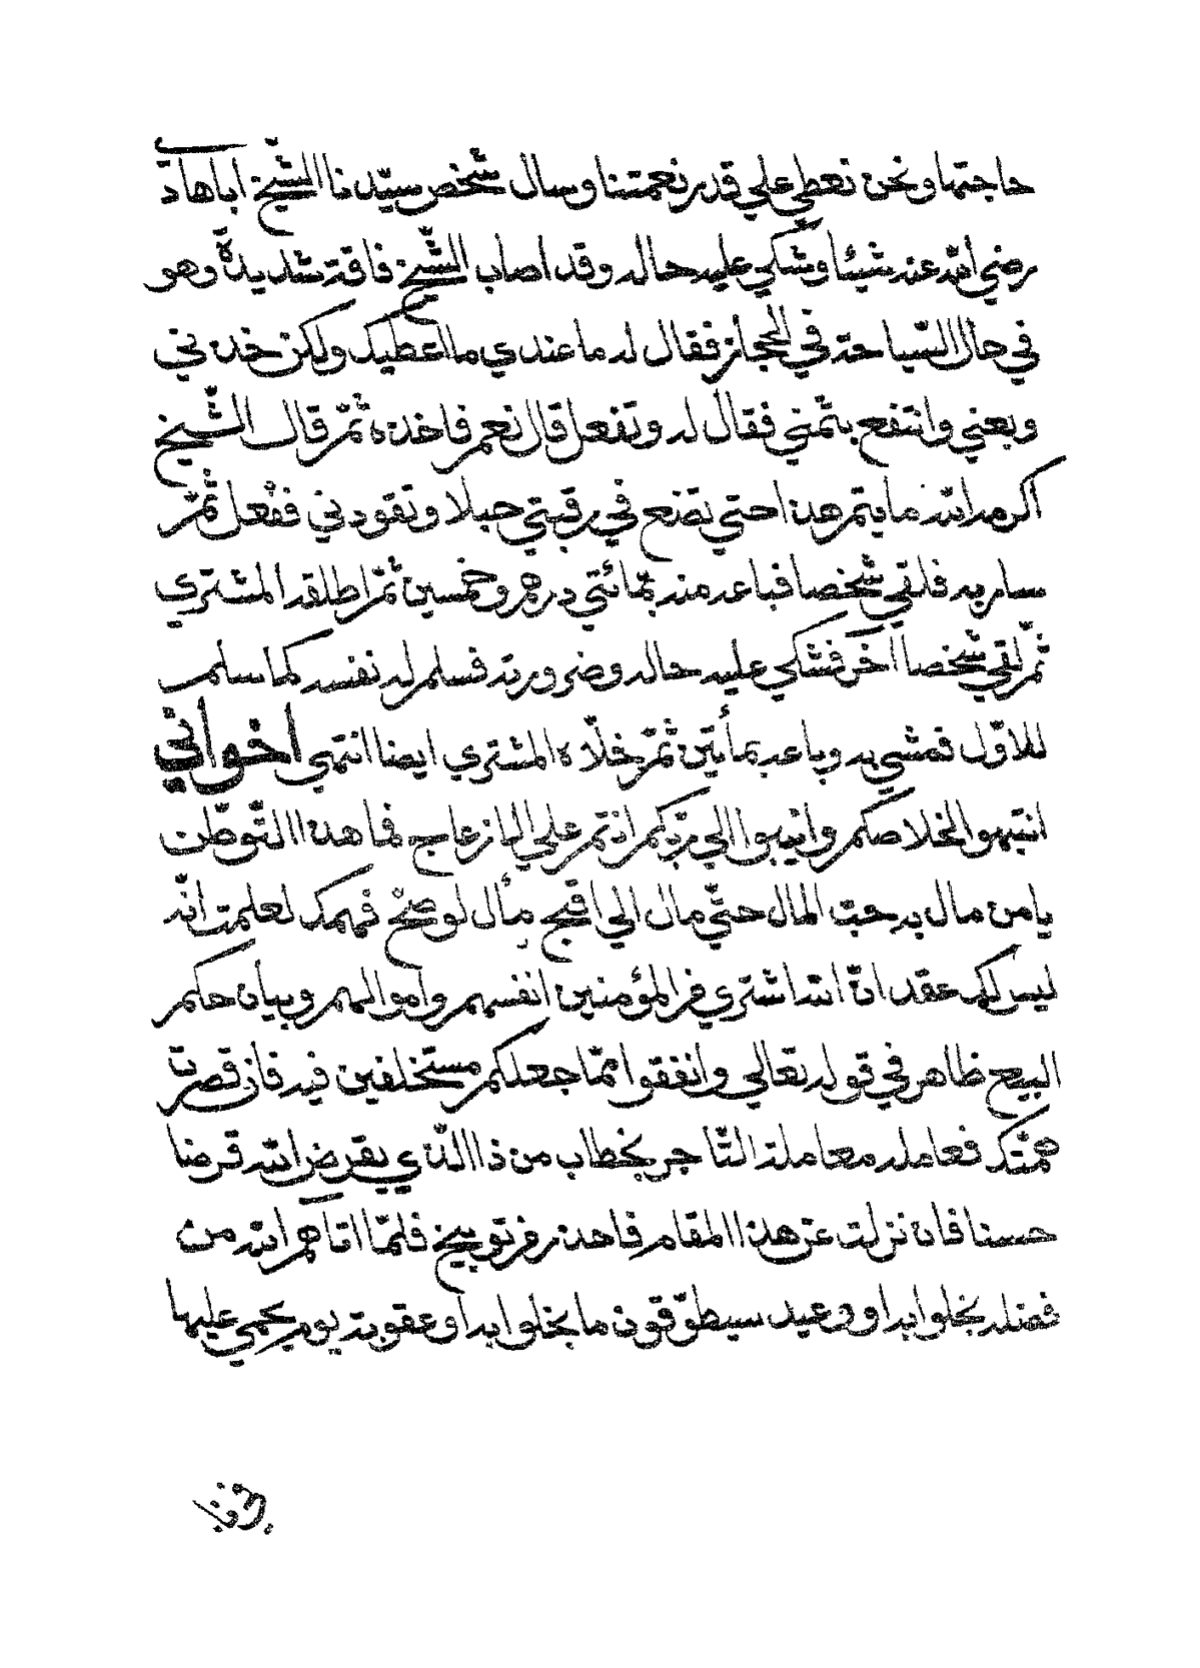 حاجتها ونحن نعطي علي قدر نعمتنا وسال شخص سيّدنا الشّيخ اباهادي
رضي الله عنه شيئا وشكي عليه حاله وقد اصاب الشّيخ فاقة شديدة وهو
في حال السّياحة في الحجاز فقال له ما عندي ما اعطيك ولكن خذني
وبعني وانتفع بثمني فقال له وتفعل قال نعم فاخذه ثمّ قال الشّيخ
اكرمه الله ما يتم هذا حتي تضع في رقبتي حبلا وتقودني ففعل ثمّ
سار به فلقي شخصا فباعه منه بمائتي درهم وخمسين ثمّ اطلقه المشتري
ثمّ لقي شخصا آخر فشكي عليه حاله وضرورته فسلم له نفسه كما سلم
للاوّل فمشي به وباعه بمأتين ثمّ خلّاه المشتري ايضا انتهي اخواني
انتبهوا لخلاصكم وانيبوا الي ربّكم انتم علي الانزعاج فما هذا التّوطن
يا من مال به حبّ المال حتّي مال الي اقبح مآل لو صحّ فهمك لعلمت انّه
ليس لك عقد انّ الله اشتري من المؤمنين انفسهم واموالهم وبيان حكم
البيع ظاهر في قوله تعالي وانفقوا ممّا جعلكم مستخلفين فيه فان قصرت
همّتك فعامله معاملة التّاجر بخطاب من ذا الّذي يقرض الله قرضا
حسنا فان نزلت عن هذا المقام فاهذر توبيخ فلمّا اتاهم الله من
فضله بخلوا به او وعيد سيطوّقون ما بخلوا به او عقوبة يوم يحمي عليها